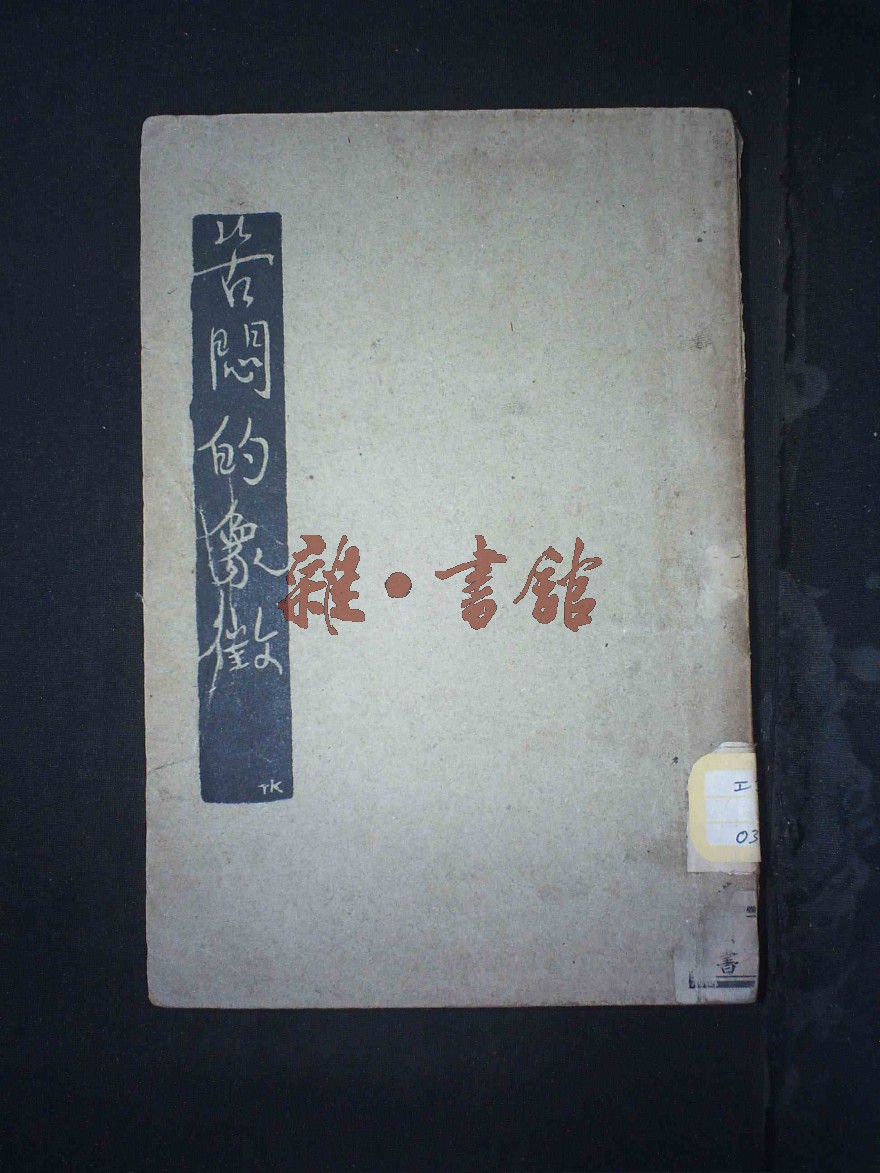 苦悶的象徵
TK
雜·書館
エ
03
書